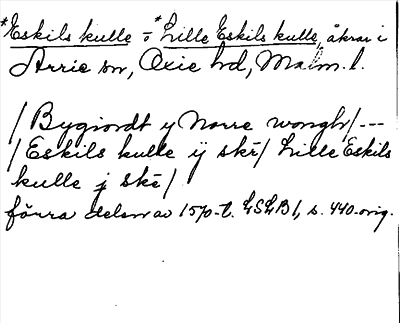 *Eskils kulle o *Lille Eskils kulle, åkrar i
Arrie sn, Oxie hd, Malm. l.
/Bygiordt y Norre wongh/---
/Eskils kulle ij skē/ Lille Eskils
kulle j skē/
förra delen av 1570-t. LSLB 1, s. 440-orig.